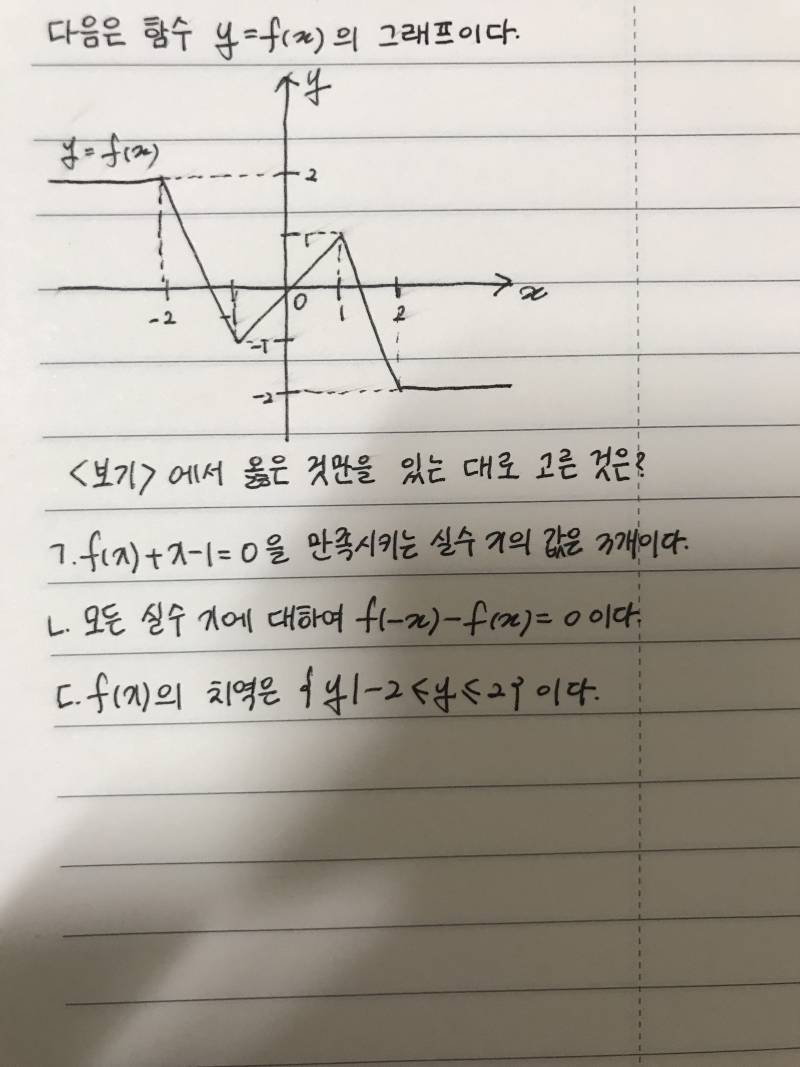 다음은 함수 y=f(x)의 그래프이다.
y
y=f(x)
2
1
-2
-1
0
1
2
x
-1
-2
<보기>에서 옳은 것만을 있는 대로 고른 것은?
ㄱ. f(x)+x-1=0을 만족시키는 실수 x의 값은 3개이다.
ㄴ. 모든 실수 x에 대하여 f(-x)-f(x)=0이다.
ㄷ. f(x)의 치역은 {y|-2≤y≤2}이다.